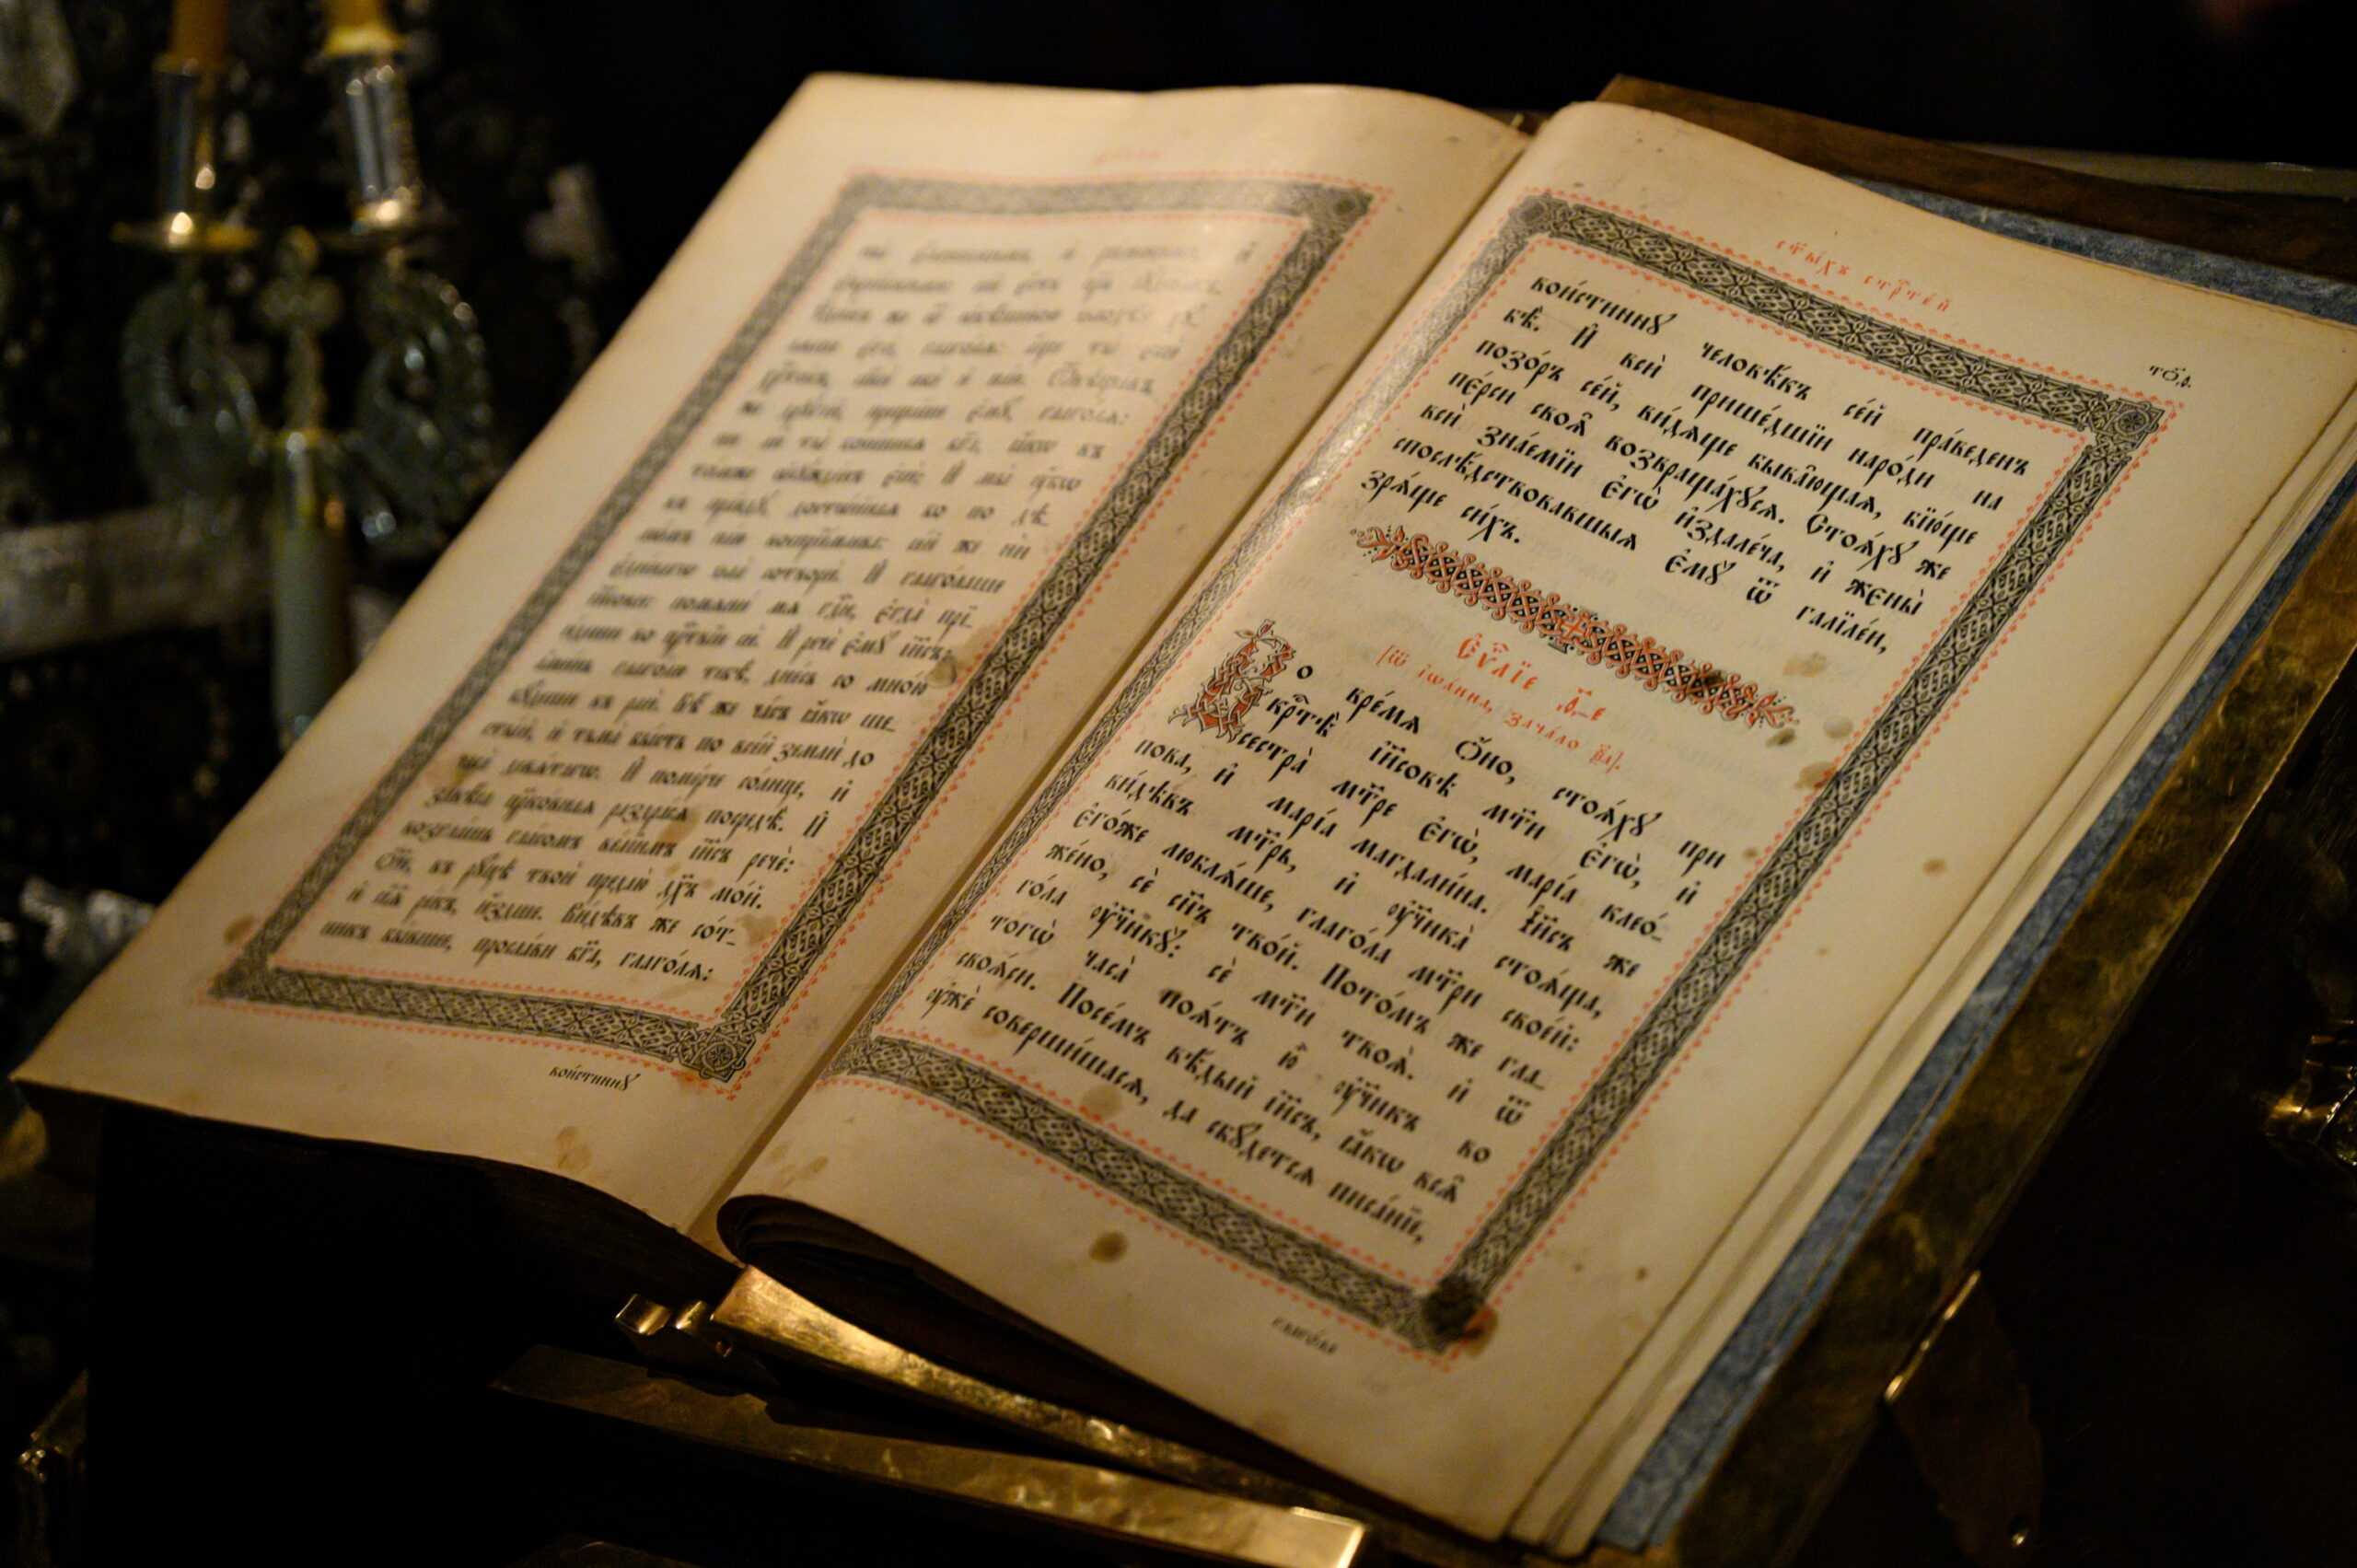 є҆ллинскими, и҆ римскими, и҆
же ѿ
є҆го̀, глаго́лѧ: а҆́ще ты̀ є҆сѝ
и҆ на́ю. Ѿвѣща́въ
же є҆мꙋ̀, глаго́лѧ:
ни ли ты̀ бои́шисѧ бг҃а, ꙗ҆́кѡ въ
то́мже ѡ҆сꙋжде́нъ є҆сѝ; И҆ мы̀ ᲂу҆́бѡ
въ пра́вдꙋ, достѡ́йнаѧ бо по дѣ-
лѡ́мъ на́ю се́й же ни
є҆ди́нагѡ ѕла̀ сотворѝ. И҆ глаго́лаше
і҆и҃сови: помѧнѝ мѧ̀ гдⷭ҇и, є҆гда̀ прї-
и́деши во црⷭ҇твїи сѝ. И҆ речѐ є҆мꙋ̀ і҆и҃съ:
а҆ми́нь глаго́лю тебѣ̀, дне́сь со мно́ю
бꙋ́деши въ раѝ. Бѣ́ же ча́съ ꙗ҆́кѡ ше-
сты́й, и҆ тьма̀ бы́сть по все́й землѝ до
часа̀ девѧ́тагѡ. И҆ поме́рче со́лнце, и҆
завѣ́са цр҃ко́внаѧ раздра́сѧ посредѣ̀. И҆
возгла́шь гла́сомъ ве́лїимъ і҆и҃съ речѐ:
Ѻ҆́ч҃е, въ рꙋ́цѣ твоѝ предаю̀ дх҃ъ мо́й.
и҆ сїѧ̑ ре́къ, и҆́здше. Ви́дѣвъ же со́т-
никъ бы́вшее, просла́ви бг҃а, глаго́лѧ:
вои́стиннꙋ
ст҃ы́хъ стрⷭ҇те́й
то҃д.
вои́стиннꙋ человѣ́къ се́й пра́веденъ
бѣ̀. И҆ всѝ прише́дшїи наро́ди на
позо́ръ се́й, ви́дѧще быва̑ющаѧ, бїю́ще
пе́рси своѧ̑ возвраща́хꙋсѧ. Стоѧ́хꙋ же
всѝ зна́емїи є҆гѡ̀ и҆здале́ча, и҆ жєны̀
спослѣ́дствовавшыѧ є҆мꙋ̀ ѿ галїле́и,
зрѧ́ще си́хъ.
Є҆ѵⷢ҇лїе д҃-е
ѿ і҆ѡа́нна, зача́ло ѯ҃а.
Во вре́мѧ ѻ҆́но, стоѧ́хꙋ при
крⷭ҇тѣ̀ і҆и҃совѣ мт҃и є҆гѡ̀, и҆
сестра̀ мт҃ре є҆гѡ̀, марі́а клео́-
пова, и҆ марі́а магдали́на. І҆и҃съ же
ви́дѣвъ мт҃рь, и҆ ᲂу҆чн҃ика̀ стоѧ́ща,
є҆го́же люблѧ́ше, глаго́ла мт҃ри свое́й:
же́но, сѐ сн҃ъ тво́й. Пото́мъ же гла-
го́ла ᲂу҆чн҃икꙋ̀: сѐ мт҃и твоѧ̀. и҆ ѿ
тогѡ̀ часа̀ поѧ́тъ ю҆̀ ᲂу҆чн҃икъ во
своѧ́си. Посе́мъ вѣ́дый і҆и҃съ, ꙗ҆́кѡ всѧ̑
ᲂу҆жѐ соверши́шасѧ, да сбꙋ́детсѧ писа́нїе,
глаго́ла